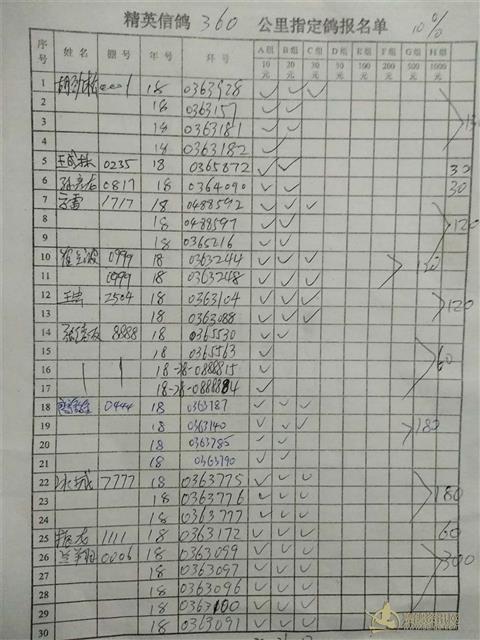 精英信鸽 360 公里指定鸽报名单 10%
序号 姓名 棚号 年号 环号 A组10元 B组20元 C组30元 D组50元 E组100元 F组200元 G组500元 H组1000元
1 0001 18 0363928 ✓ ✓ ✓
2 18 0363157 ✓ ✓
3 18 0363181 ✓ ✓
4 18 0363182 ✓ ✓
5 0235 18 0365872 ✓ ✓ 30
6 0817 18 0364090 ✓ ✓ 30
7 1717 18 0488592 ✓ ✓ ✓
8 18 0488597 ✓ ✓ 120
9 18 0365216 ✓ ✓
10 0999 18 0363244 ✓ ✓ ✓ 120
11 0999 18 0363248 ✓ ✓ ✓
12 2504 18 0363104 ✓ ✓ ✓ 120
13 18 0363088 ✓ ✓ ✓
14 8888 18 0365530 ✓ ✓
15 18 0365563 ✓ 60
16 18-28-0888815 ✓
17 18-28-0888814 ✓
18 0444 18 0363187 ✓ ✓ ✓
19 18 0363140 ✓ ✓ ✓ 180
20 18 0363785 ✓ ✓
21 18 0363190 ✓ ✓
22 冰城 7777 18 0363775 ✓ ✓ ✓
23 18 0363776 ✓ ✓ ✓ 180
24 18 0363777 ✓ ✓ ✓
25 1111 18 0363172 ✓ ✓ ✓ 60
26 兰翔 0006 18 0363099 ✓ ✓ ✓ 300
27 18 0363097 ✓ ✓ ✓
28 18 0363096 ✓ ✓ ✓
29 18 0363100 ✓ ✓ ✓
30 18 0363091 ✓ ✓ ✓